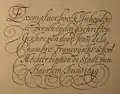 Exemplaer-boeck Inhoudende
Verscheyden geschriften
Geschreven door Jean de la
Chambre Françoysche school
Meester binnen de Stadt van
Haerlem, Anno